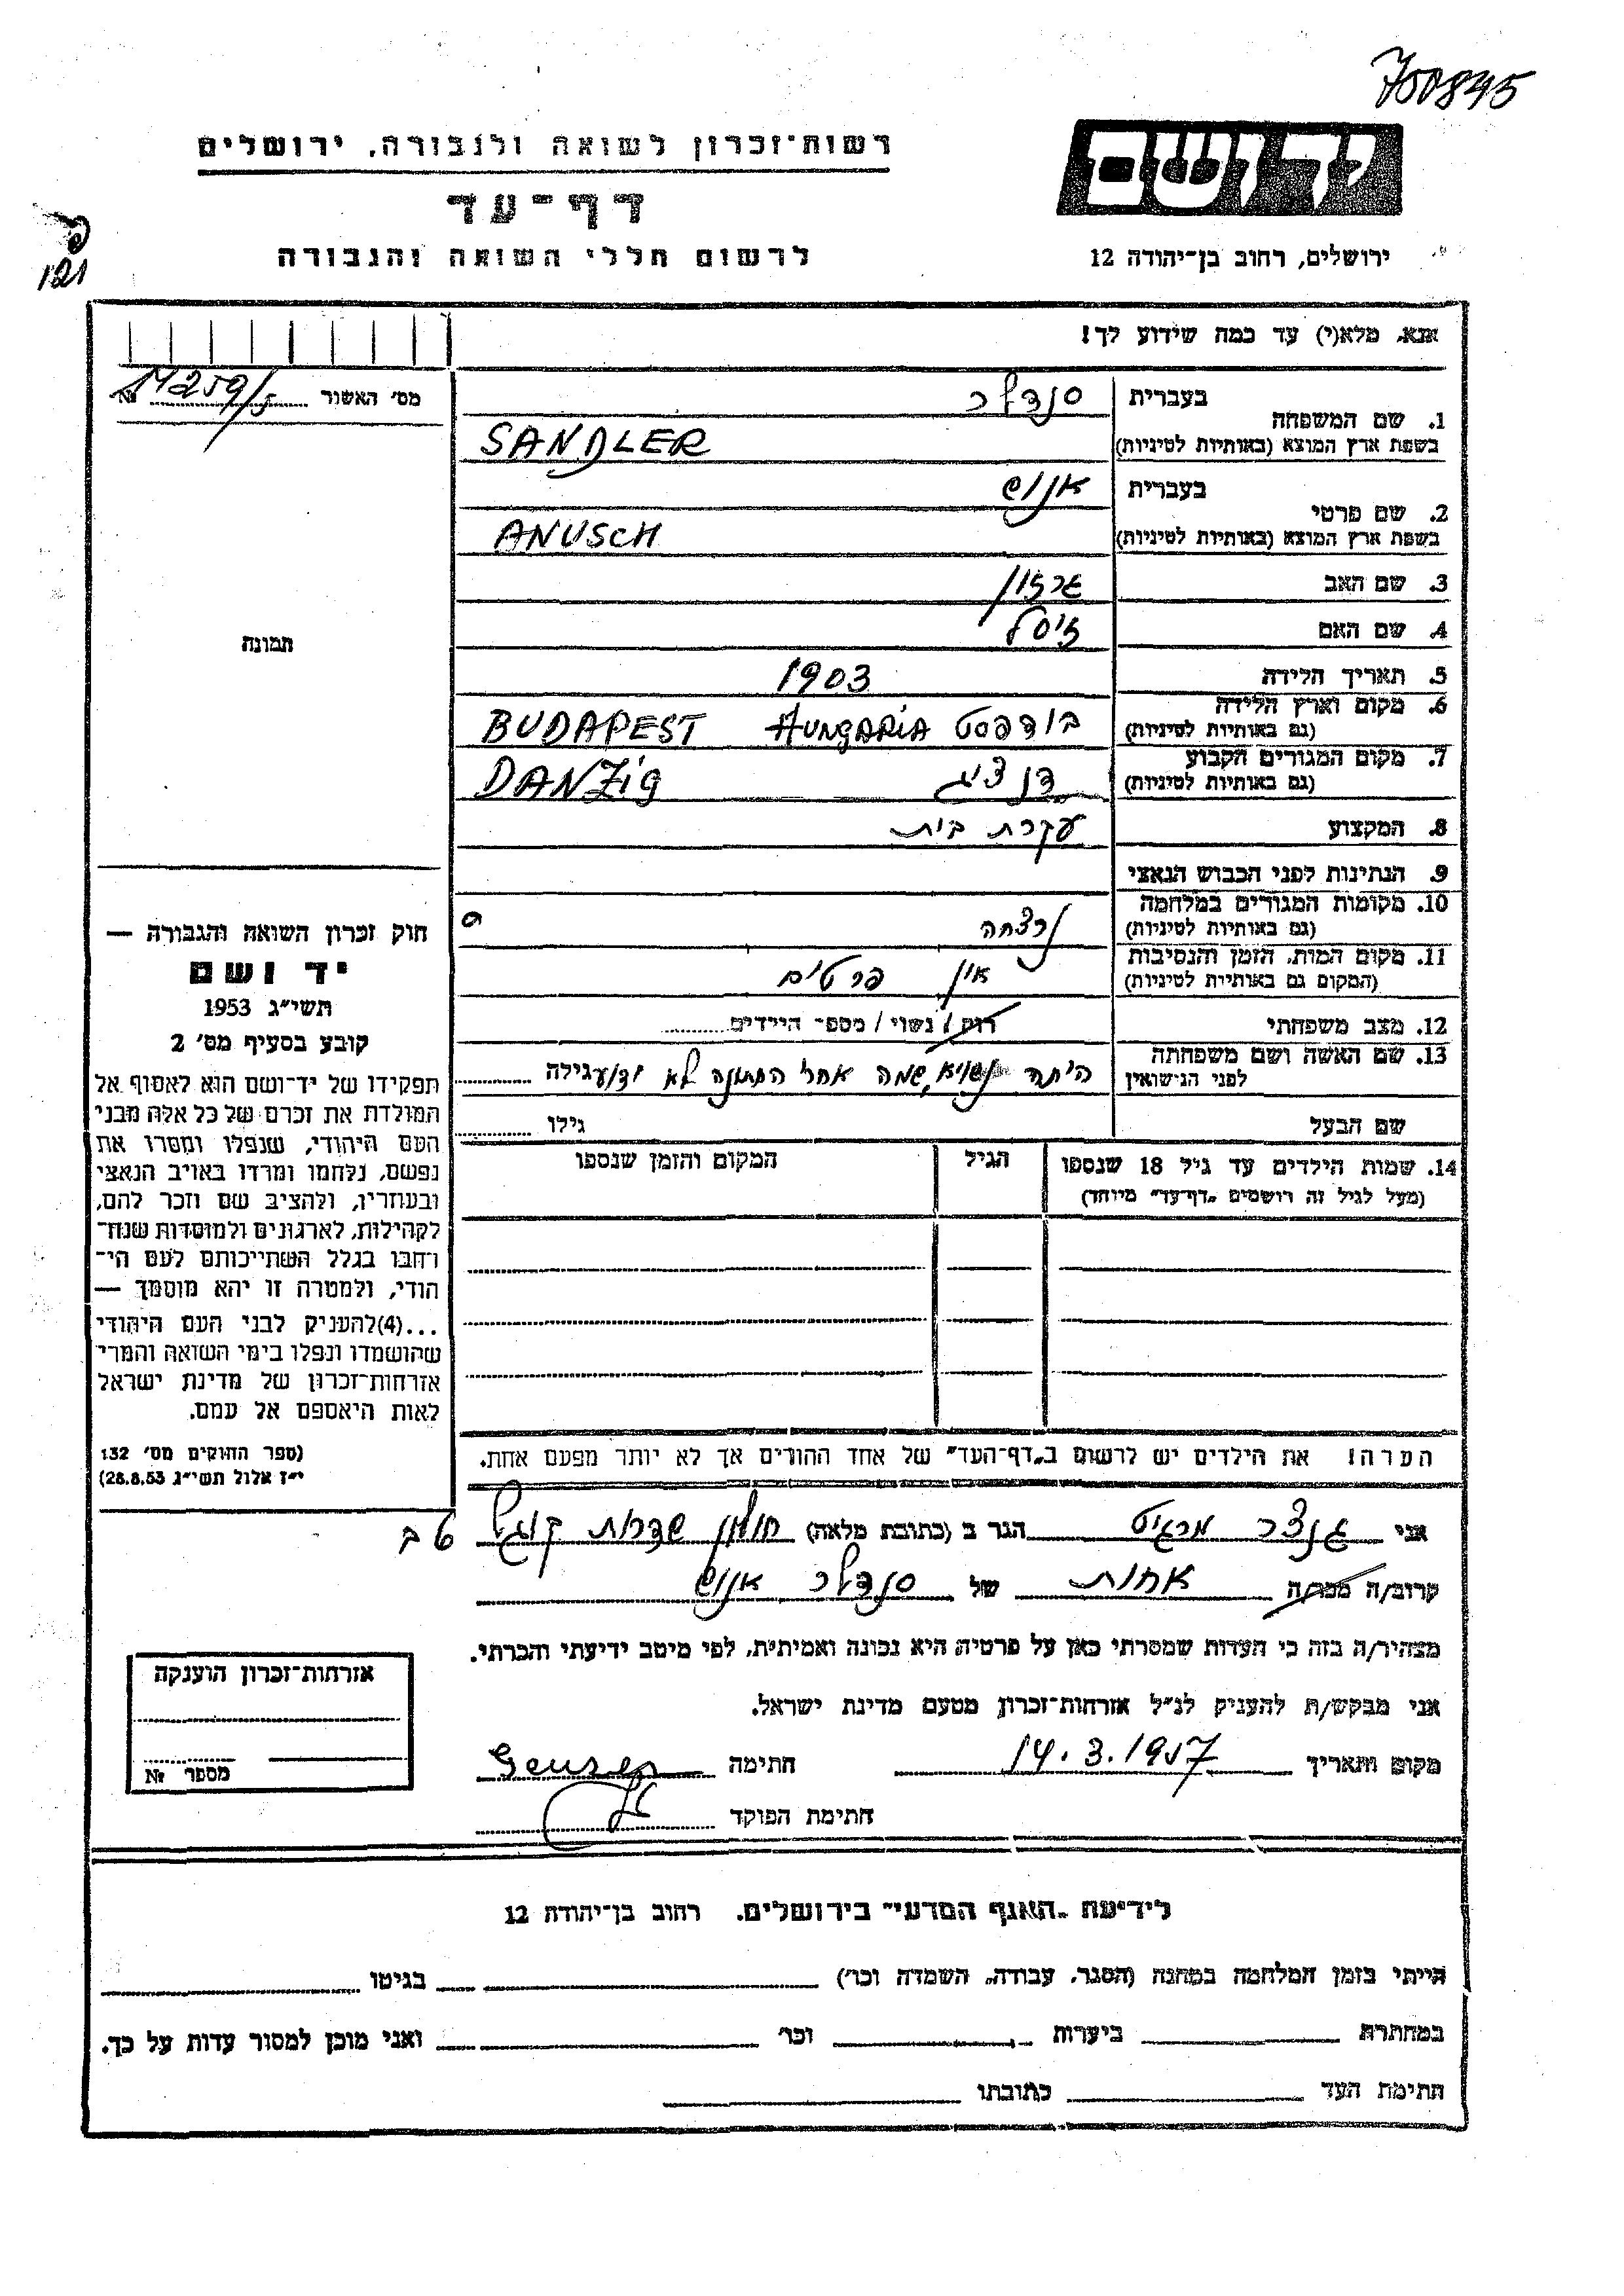 700845
רשות־זכרון לשואה ולגבורה, ירושלים
יד ושם
דף־עד
לרשום חללי השואה והגבורה
ירושלים, רחוב בן־יהודה 12
121
אנא, מלא(י) עד כמה שידוע לך!
מס׳ האשור
№
בעברית סנדלר
1. שם המשפחה
בשפת ארץ המוצא (באותיות לטיניות) SANDLER
בעברית אנוש
2. שם פרטי
בשפת ארץ המוצא (באותיות לטיניות) ANUSCH
3. שם האב
4. שם האם זיסל
5. תאריך הלידה 1903
6. מקום וארץ הלידה (גם באותיות לטיניות) בודפסט HUNGARIA BUDAPEST
7. מקום המגורים הקבוע (גם באותיות לטיניות) דנציג DANZIG
8. המקצוע עקרת בית
9. הנתינות לפני הכבוש הנאצי
10. מקומות המגורים במלחמה (גם באותיות לטיניות) נרצחה
11. מקום המות, הזמן והנסיבות (המקום גם באותיות לטיניות) אין פרטים
12. מצב משפחתי רווק / נשוי / מספר הילדים
13. שם האשה ושם משפחתה לפני הנישואין היתה נשואה, שמה אחרי החתונה לא ידוע גילה
שם הבעל גילו
14. שמות הילדים עד גיל 18 שנספו הגיל המקום והזמן שנספו
(מעל לגיל זה רושמים „דף־עד” מיוחד)
תמונה
חוק זכרון השואה והגבורה —
יד ושם
תשי״ג 1953
קובע בסעיף מס׳ 2
תפקידו של יד־ושם הוא לאסוף אל
המולדת את זכרם של כל אלה מבני
העם היהודי, שנפלו ומסרו את
נפשם, נלחמו ומרדו באויב הנאצי
ובעוזריו, ולהציב שם וזכר להם,
לקהילות, לארגונים ולמוסדות שנח־
רבו בגלל השתייכותם לעם הי־
הודי, ולמטרה זו יהא מוסמך —
...(4)להעניק לבני העם היהודי
שהושמדו ונפלו בימי השואה והמרי
אזרחות־זכרון של מדינת ישראל
לאות היאספם אל עמם.
(ספר החוקים מס׳ 132
י״ז אלול תשי״ג 28.8.53)
הערה! את הילדים יש לרשום ב„דף־העד” של אחד ההורים אך לא יותר מפעם אחת.
אני גנצר מרגיט הגר ב (כתובת מלאה) חולון שדרות קוגל 9 ב
קרוב/ה מכר/ה אחות של סנדלר אנוש
מצהיר/ה בזה כי העדות שמסרתי כאן על פרטיה היא נכונה ואמיתית, לפי מיטב ידיעתי והכרתי.
אני מבקש/ת להעניק לנ״ל אזרחות־זכרון מטעם מדינת ישראל.
מקום ותאריך 14.3.1957 חתימה
חתימת הפוקד
אזרחות־זכרון הוענקה
מספר №
לידיעת „האגף המדעי” בירושלים, רחוב בן־יהודה 12
הייתי בזמן המלחמה במחנה (הסגר, עבודה, השמדה וכו׳) בגיטו
במחתרת ביערות וכו׳ ואני מוכן למסור עדות על כך.
חתימת העד כתובתו